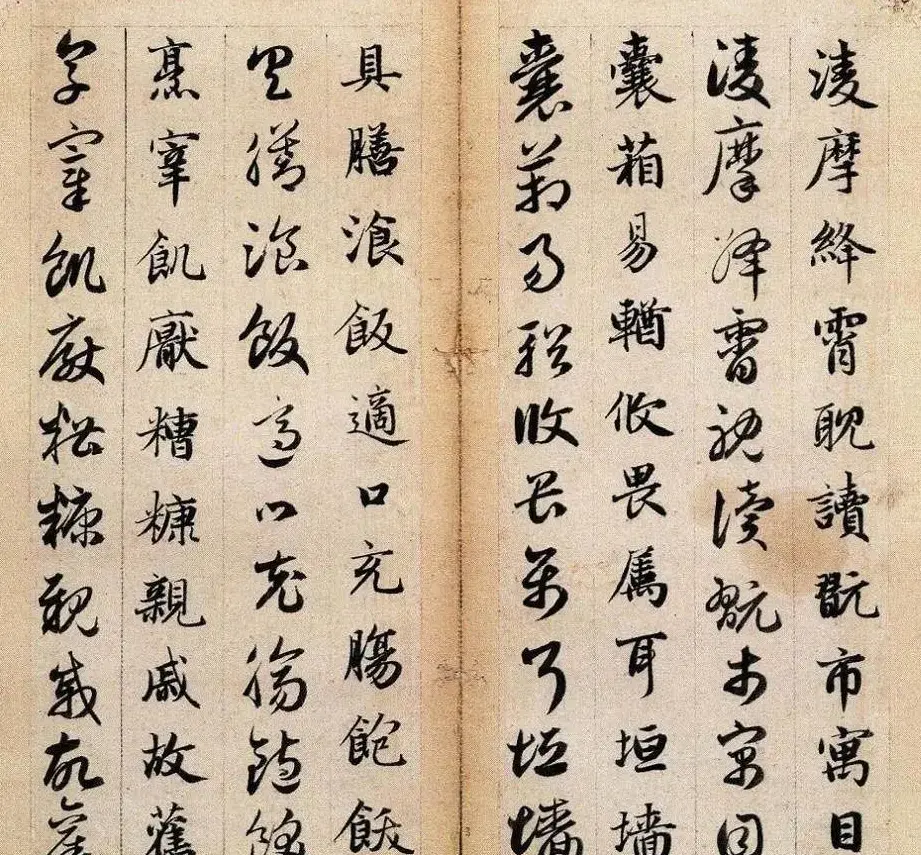 淩摩絳霄耽讀翫市寓目
淩摩絳霄耽讀翫市寓目
囊葙易輶攸畏属耳垣墻
囊葙易輶攸畏属耳垣墻
具膳湌飯適口充膓飽飫
具膳湌飯適口充膓飽飫
烹宰飢厭糟糠親戚故舊
烹宰飢厭糟糠親戚故舊